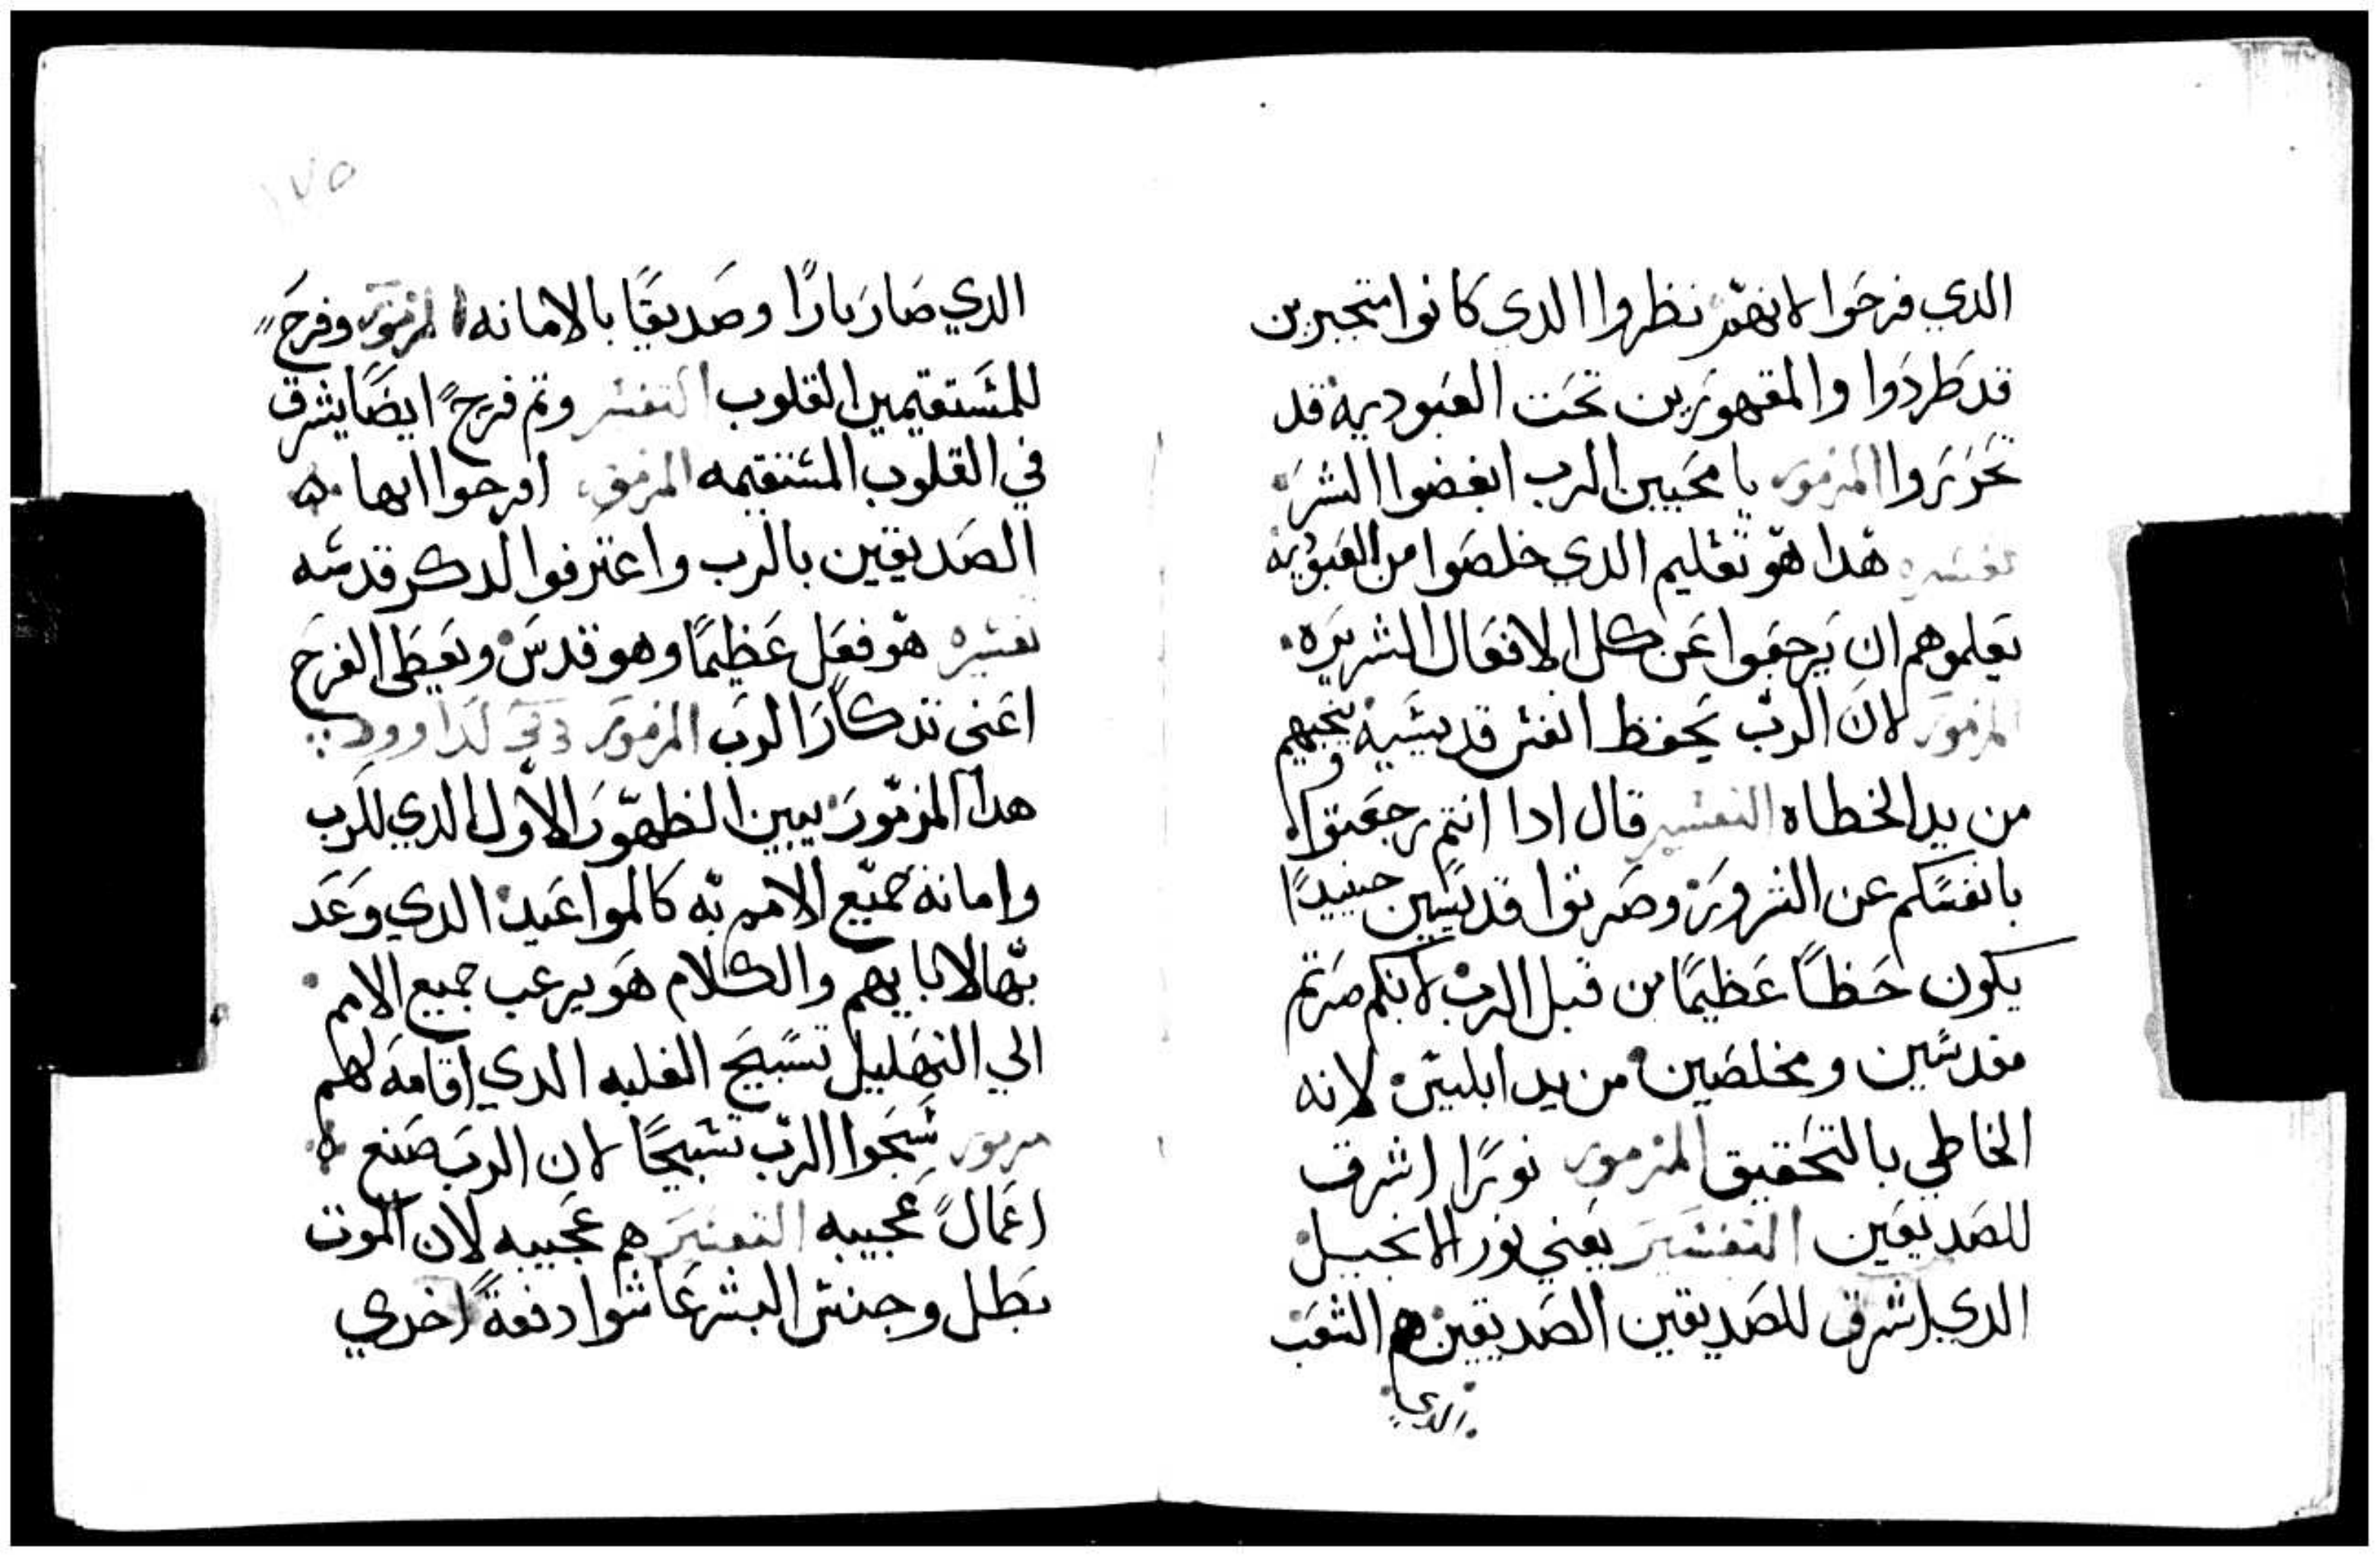 الدي فرحوا لانهم نظروا الدي كانوا متجبرين
قد طردوا والمقهورين تحت العبوديه قد
تحرروا المزمور يا محبين الرب ابغضوا الشر
تفسيره هدا هو تعليم الدي خلصوا من العبوديه
يعلموهم ان يرجعوا عن كل الافعال الشريره
المزمور لان الرب يحفظ انفس قديسيه وينجيهم
من يد الخطاه التفسير قال ادا انتم رجعتوا
بانفسكم عن الشرور وصرتوا قديسين حينيدًا
يكون حظًا عظيمًا من قبل الرب لانكم صرتم
مقدسين ومخلصين من يد ابليس لانه
الخاطي بالتحقيق المزمور نورًا اشرق
للصديقين التفسير يعني نور الانجيل
الدي اشرق للصديقين الصديقين هم الشعب
الدي
١٧٥
الدي صار بارًا وصديقًا بالامانه المزمور وفرح
للمستقيمين القلوب التفسير وتم فرح ايضًا يشرق
في القلوب المستقيمه المزمور افرحوا ايها
الصديقين بالرب واعترفوا لدكر قدسه
تفسيره هو فعل عظيمًا وهو قدس ويعطى الفرح
اعنى تدكار الرب المزمور لداوود
هدا المزمور يبين الظهور الاول الدي للرب
وامانة جميع الامم به كالمواعيد الدي وعد
بها لابايهم والكلام هو يرعب جميع الامم
الي التهليل تسبيح الغلبه الدي اقامه لهم
مزمور سبحوا الرب تسبيحًا لان الرب صنع
اعمالً عجيبه التفسير هم عجيبه لان الموت
بطل وجنس البشر عاشوا دفعةً اخري